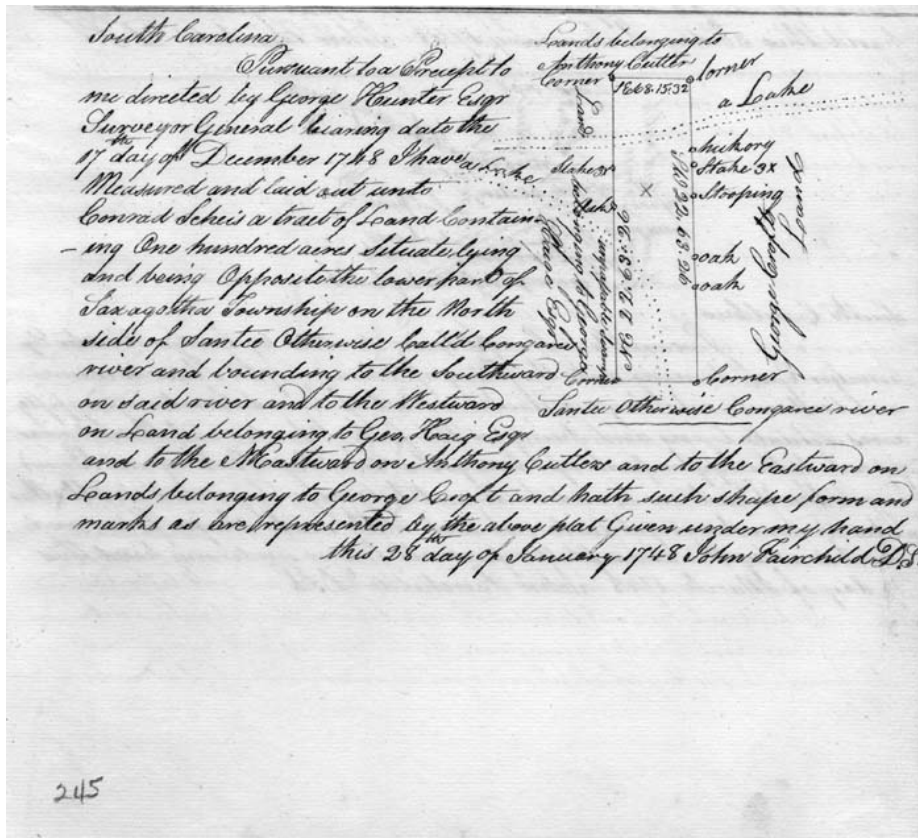 South Carolina
Pursuant to a Precept to
me directed by George Hunter Esqr
Surveyor General bearing date the
17th day of December 1748 I have
Measured and laid out unto
Conrad Scheis a tract of Land Contain-
-ing One hundred acres Situate lying
and being Opposite the lower part of
Saxagotha Township on the North
side of Santee Otherwise Call'd Congaree
river and bounding to the Southward
on said river and to the Westward
on Land belonging to Geo. Haig Esqr
and to the NEastward on Anthony Cutlers and to the Eastward on
Lands belonging to George Croft and hath such shape form and
marks as are represented by the above plat Given under my hand
this 28th day of January 1748 John Fairchild D.S.
Lands belonging to
Anthony Cutler
Corner
Corner
SE 68. 15:32
a Lake
a Lake
hickory
Stake 3x
Stake 3x
Stooping
oak
oak
Land belonging to George
Haig Esqr
swamp
NE 22. 63:96
63.96
George Croft
Land
Corner
Corner
Santee Otherwise Congaree river
245